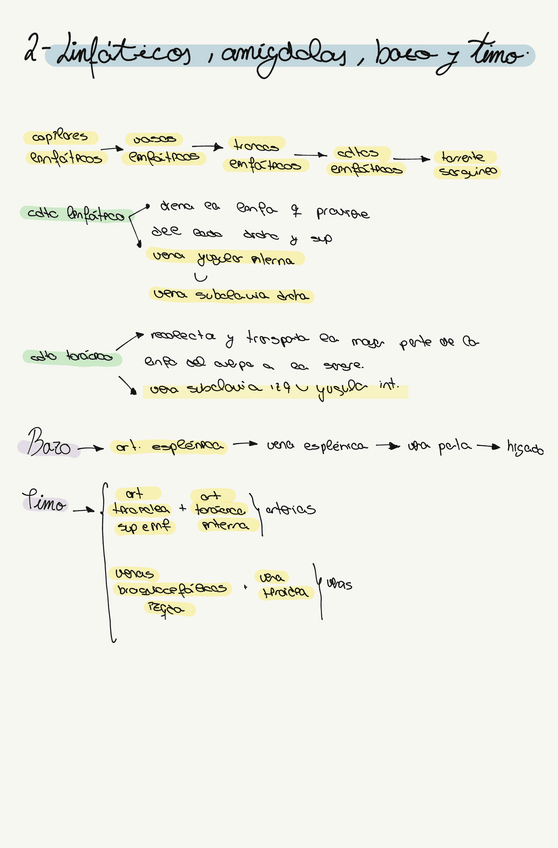 2- Linfáticos, amígdalas, bazo y timo.
capilares linfáticos → vasos linfáticos → troncos linfáticos → cdtos linfáticos → torrente sanguíneo
cdto linfático → drena la linfa q proviene
del lado drcho y sup
vena yugular interna
∪
vena subclavia drcha
cdto torácico → recolecta y transporta la mayor parte de la
linfa del cuerpo a la sangre.
vena subclavia izq ∪ yugular int.
Bazo → art. esplénica → vena esplénica → vena porta → hígado
Timo → art tiroidea sup e inf + art torácica interna } arterias
venas braquiocefálicas izqda · vena tiroidea } venas